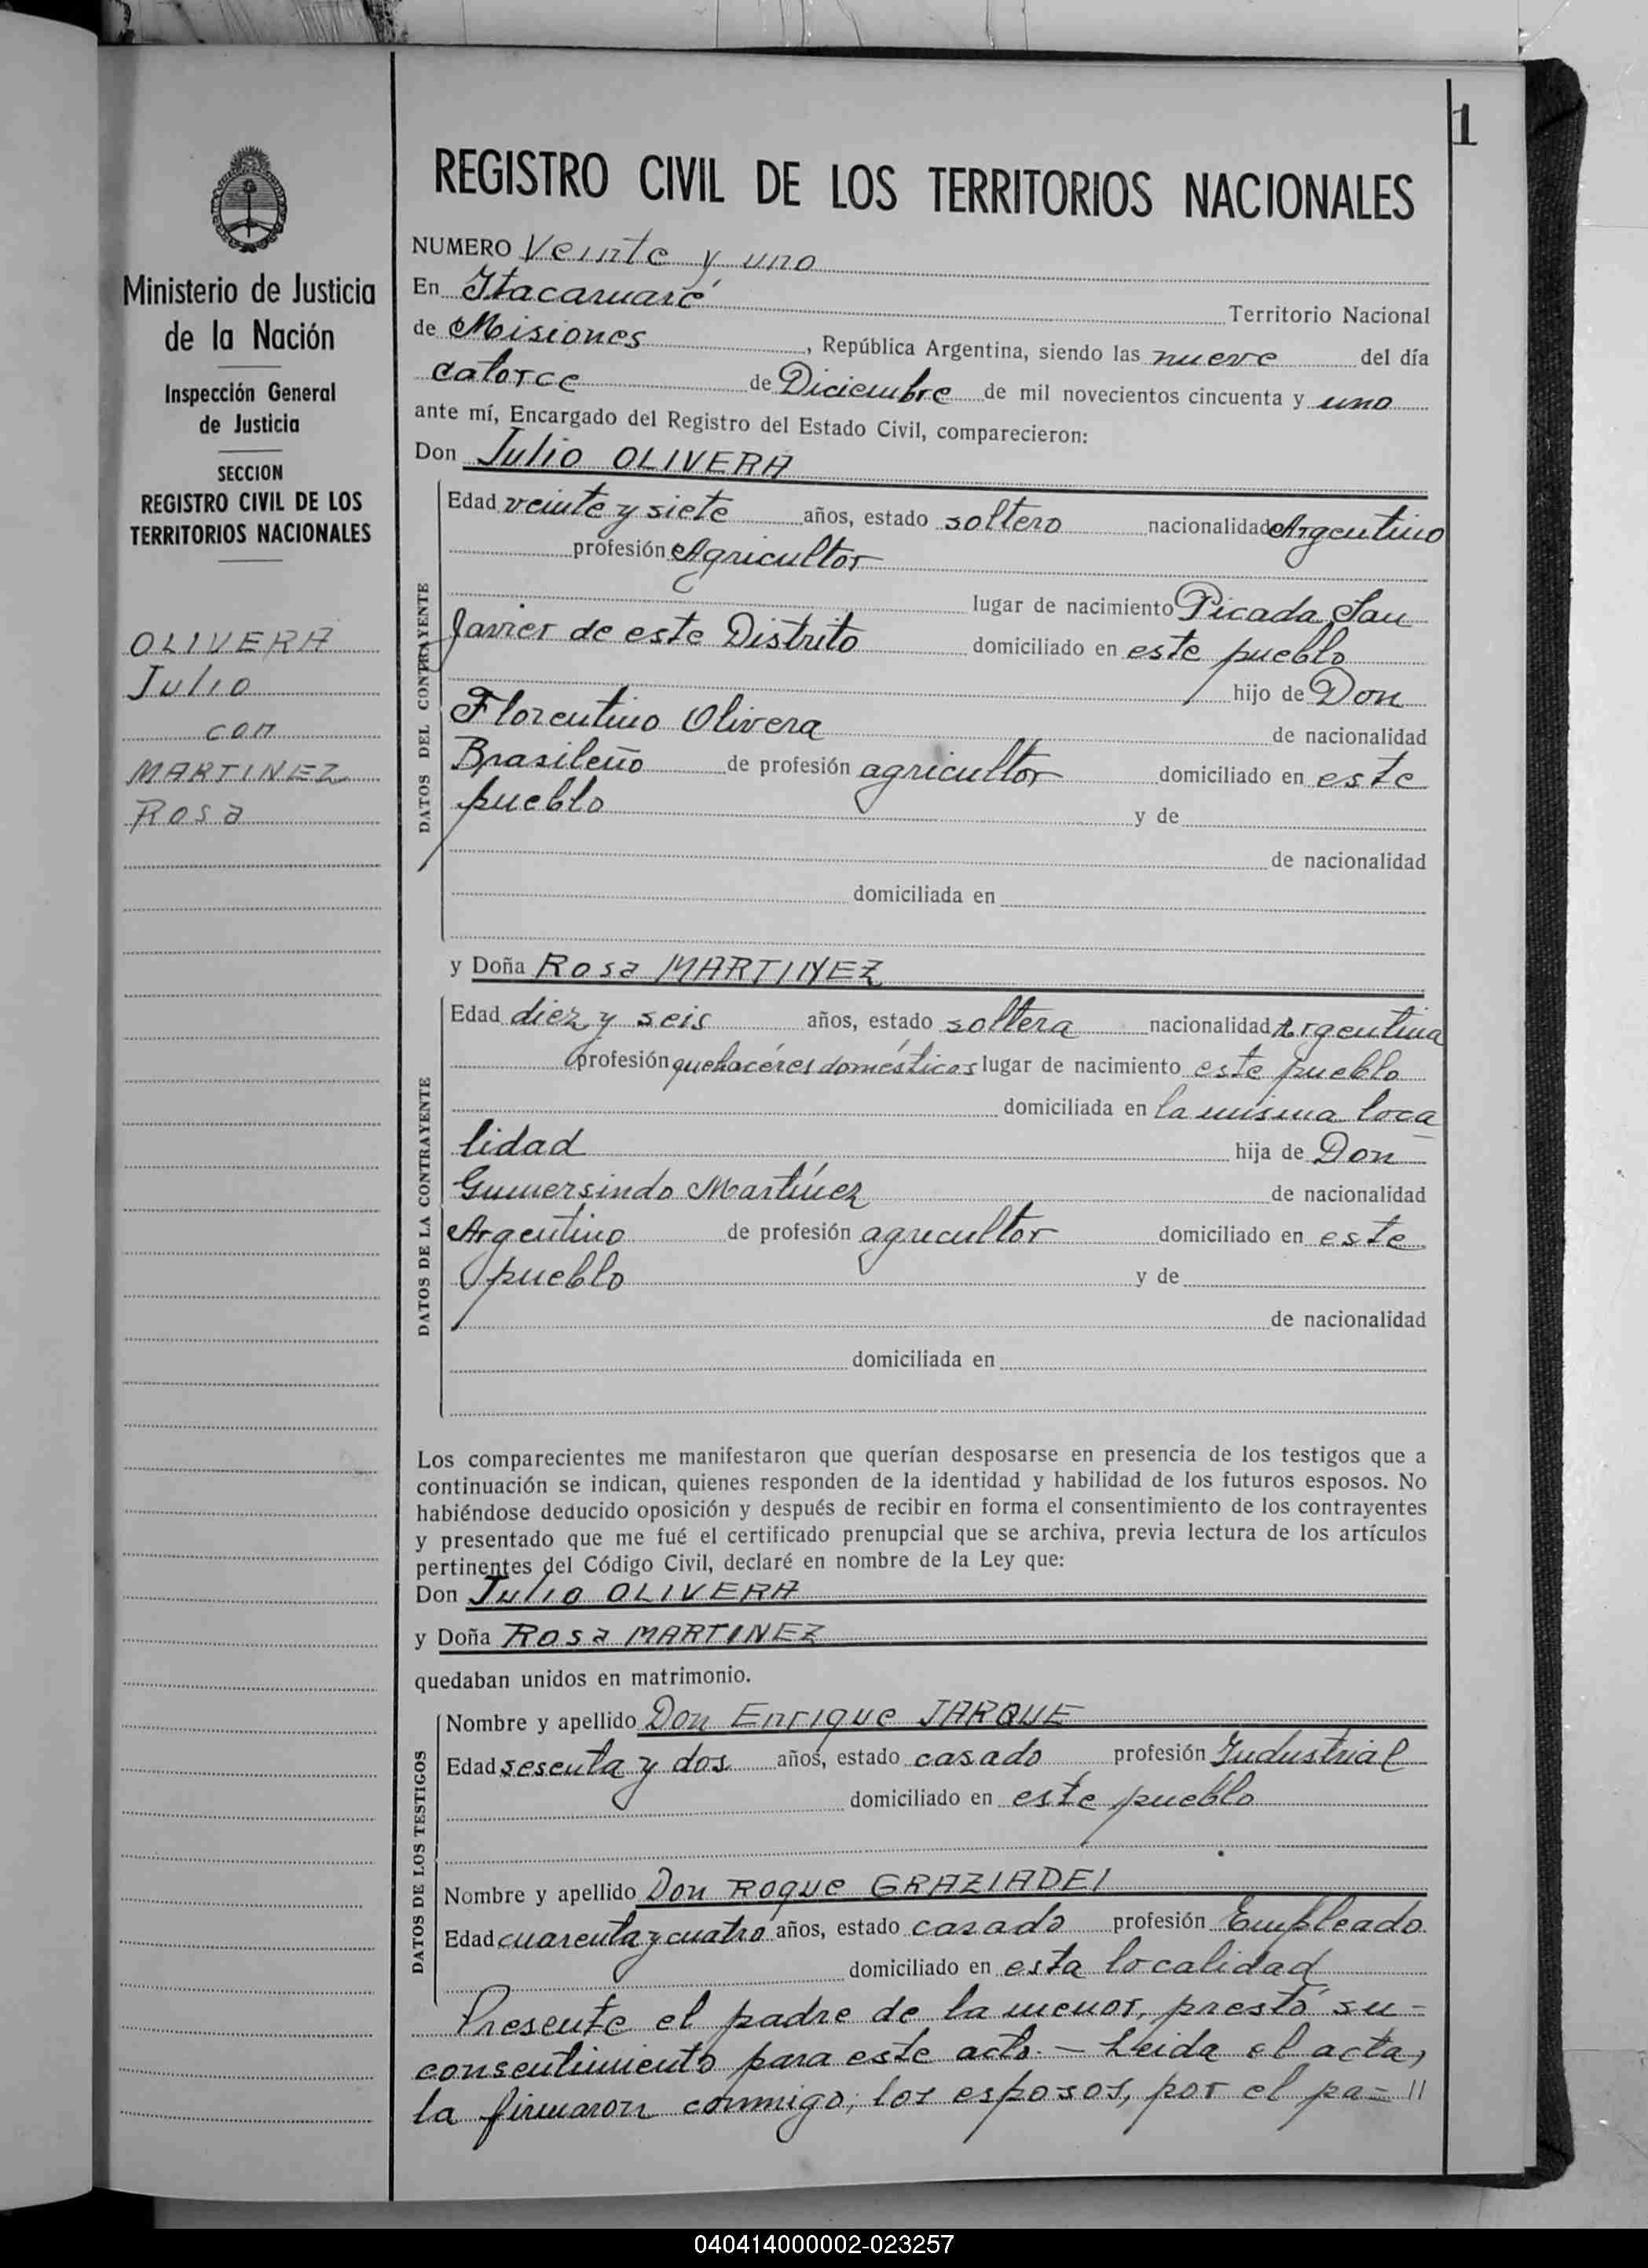 1
REGISTRO CIVIL DE LOS TERRITORIOS NACIONALES
Ministerio de Justicia
de la Nación
Inspección General
de Justicia
SECCION
REGISTRO CIVIL DE LOS
TERRITORIOS NACIONALES
OLIVERA
Julio
con
MARTINEZ
Rosa
NUMERO Veinte y uno
En Itacaruaré Territorio Nacional
de Misiones, República Argentina, siendo las nueve del día
catorce de Diciembre de mil novecientos cincuenta y uno
ante mí, Encargado del Registro del Estado Civil, comparecieron:
Don Julio OLIVERA
DATOS DEL CONTRAYENTE
Edad veinte y siete años, estado soltero nacionalidad Argentino
profesión Agricultor
lugar de nacimiento Picada San
Javier de este Distrito domiciliado en este pueblo
hijo de Don
Florentino Olivera de nacionalidad
Brasileño de profesión agricultor domiciliado en este
pueblo y de
de nacionalidad
domiciliada en
y Doña Rosa MARTINEZ
DATOS DE LA CONTRAYENTE
Edad diez y seis años, estado soltera nacionalidad Argentina
profesión quehacéres domésticos lugar de nacimiento este pueblo
domiciliada en la misma loca
lidad hija de Don
Gumersindo Martínez de nacionalidad
Argentino de profesión agricultor domiciliado en este
pueblo y de
de nacionalidad
domiciliada en
Los comparecientes me manifestaron que querían desposarse en presencia de los testigos que a
continuación se indican, quienes responden de la identidad y habilidad de los futuros esposos. No
habiéndose deducido oposición y después de recibir en forma el consentimiento de los contrayentes
y presentado que me fué el certificado prenupcial que se archiva, previa lectura de los artículos
pertinentes del Código Civil, declaré en nombre de la Ley que:
Don Julio OLIVERA
y Doña Rosa MARTINEZ
quedaban unidos en matrimonio.
DATOS DE LOS TESTIGOS
Nombre y apellido Don Enrique JARQUE
Edad sesenta y dos años, estado casado profesión Industrial
domiciliado en este pueblo
Nombre y apellido Don Roque GRAZIADEI
Edad cuarenta y cuatro años, estado casado profesión Empleado
domiciliado en esta localidad
Presente el padre de la menor, prestó su -
consentimiento para este acto. - Leida el acta,
la firmaron conmigo; los esposos, por el pa= //
040414000002-023257